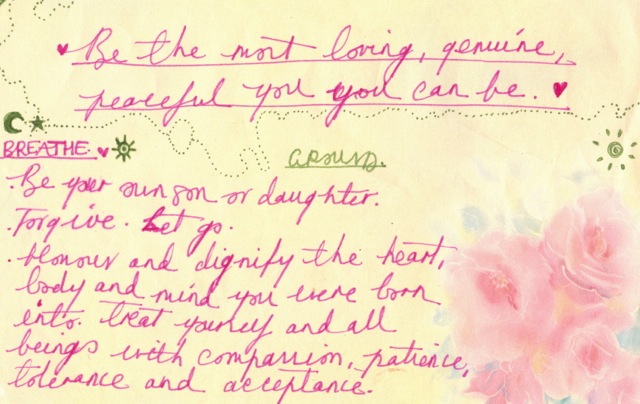 Be the most loving, genuine,
peaceful you you can be.
BREATHE.
GROUND.
·Be your own son or daughter.
·Forgive. Let go.
·Honour and dignify the heart,
body and mind you were born
into. Treat yourself and all
beings with compassion, patience,
tolerance and acceptance.